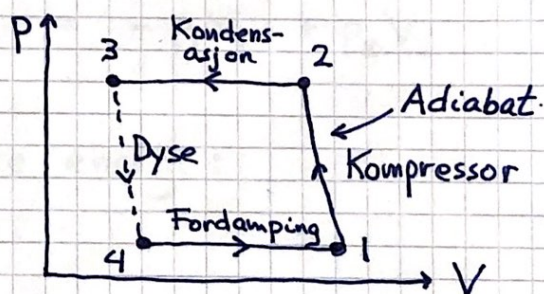 P
3
Kondens-
asjon
2
Adiabat.
Dyse
Kompressor
Fordamping
4
1
V